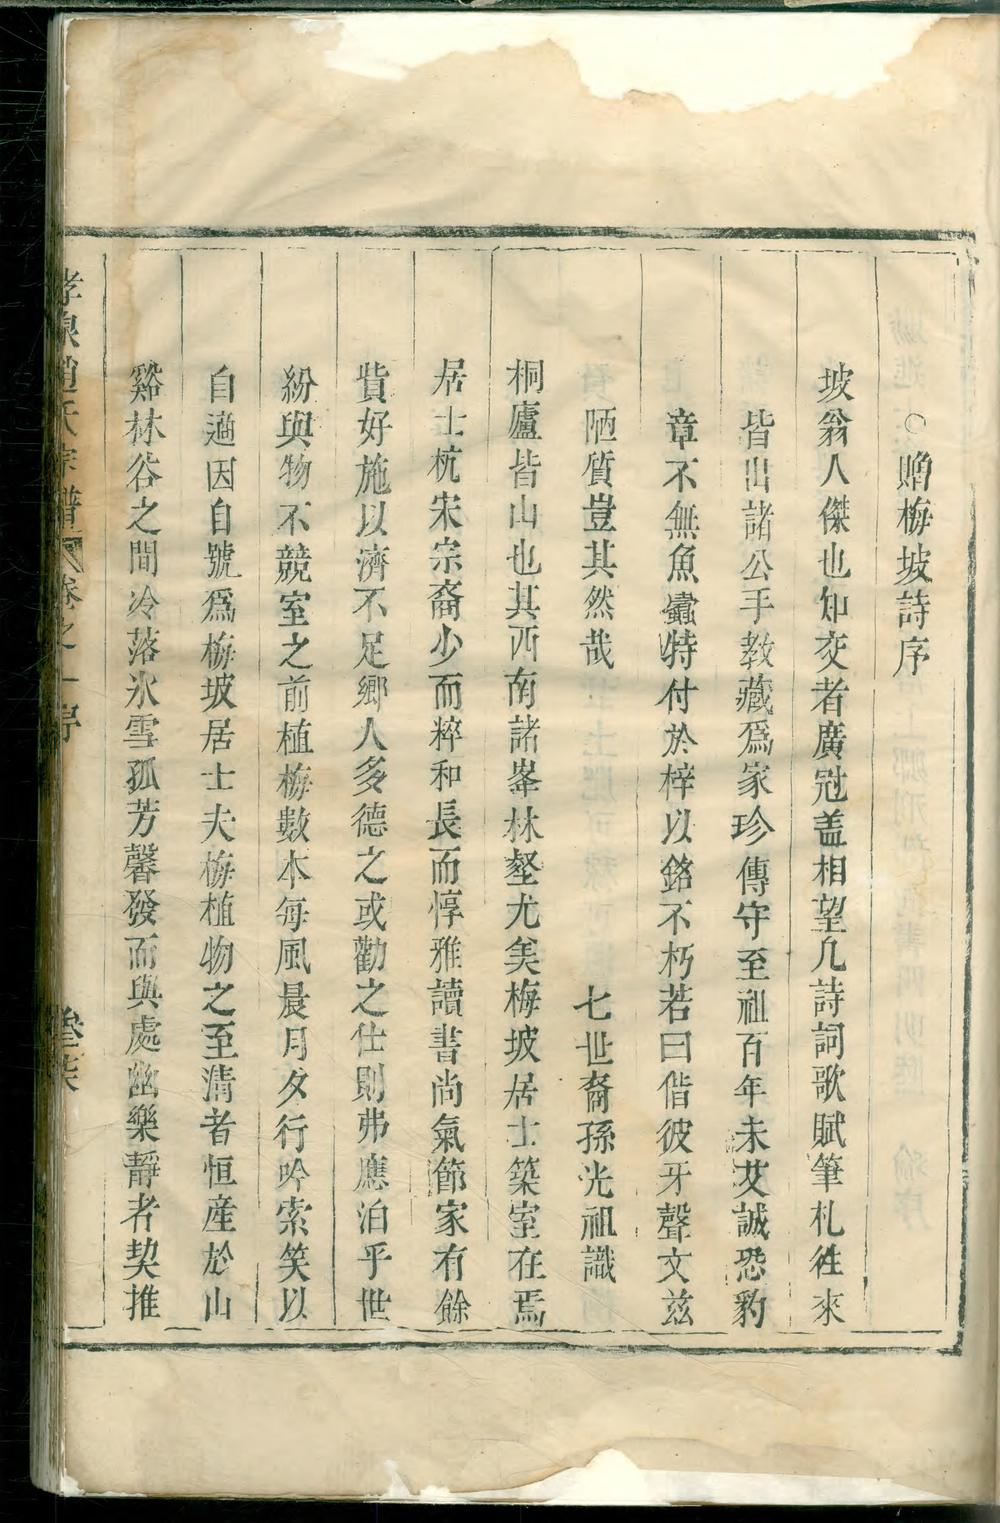 ○贈梅坡詩序
坡翁人傑也知交者廣冠盖相望凡詩詞歌賦筆札徃來
皆出諸公手教藏爲家珍傳守至祖百年未艾誠恐豹
章不無魚蠹特付於梓以銘不朽若曰偕彼牙聲文茲
陋質豈其然哉　七世裔孫光祖識
桐廬皆山也其西南諸峯林壑尤美梅坡居士築室在焉
居士杭宋宗裔少而粹和長而惇雅讀書尚氣節家有餘
貲好施以濟不足鄉人多德之或勸之仕則弗應泊乎世
紛與物不競室之前植梅數本每風晨月夕行吟索笑以
自適因自號爲梅坡居士夫梅植物之至清者恒産於山
谿林谷之間冷落氷雪孤芳馨發而與處幽樂靜者契推
趙氏宗譜 卷之一序